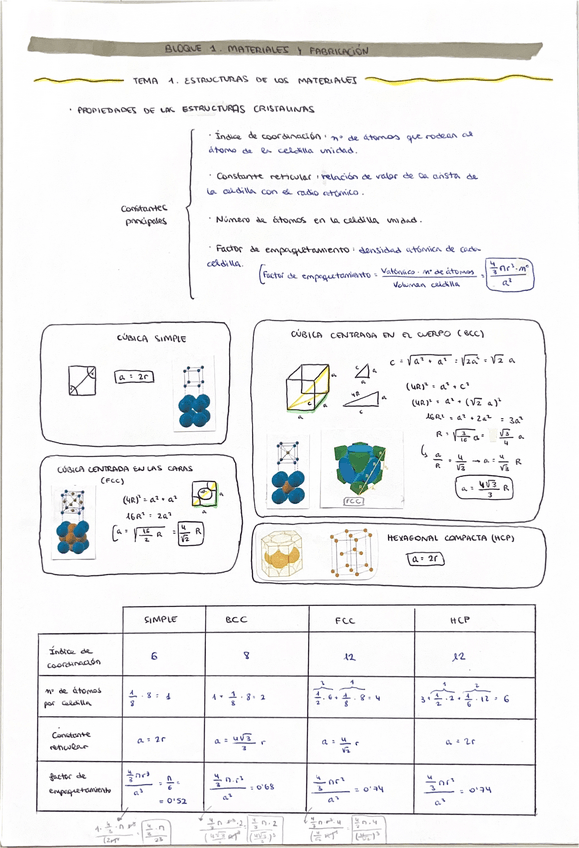 BLOQUE 1. MATERIALES Y FABRICACIÓN
TEMA 1. ESTRUCTURAS DE LOS MATERIALES
· PROPIEDADES DE LAS ESTRUCTURAS CRISTALINAS
Constantes
principales
· Índice de coordinación: nº de átomos que rodean al
átomo de la celdilla unidad.
· Constante reticular: relación de valor de la arista de
la celdilla con el radio atómico.
· Número de átomos en la celdilla unidad.
· Factor de empaquetamiento: densidad atómica de cada
celdilla.
Factor de empaquetamiento = Vatómico · nº de átomos / Volumen celdilla = 4/3 πr³ · nº / a³
CÚBICA SIMPLE
a = 2r
CÚBICA CENTRADA EN EL CUERPO (BCC)
c = √a² + a² = √2a² = √2 a
(4R)² = a² + c²
(4R)² = a² + (√2 a)²
16R² = a² + 2a² = 3a²
R = √3/16 a = √3/4 a
a/R = 4/√3 → a = 4/√3 R
a = 4√3/3 R
FCC
CÚBICA CENTRADA EN LAS CARAS
(FCC)
(4R)² = a² + a²
16R² = 2a²
a = √16/2 R = 4/√2 R
HEXAGONAL COMPACTA (HCP)
a = 2r
SIMPLE BCC FCC HCP
Índice de
coordinación 6 8 12 12
nº de átomos
por celdilla 1/8 · 8 = 1 1 + 1/8 · 8 = 2 1/2 · 6 + 1/8 · 8 = 4 3 + 1/2 · 2 + 1/6 · 12 = 6
Constante
reticular a = 2r a = 4√3/3 r a = 4/√2 r a = 2r
factor de
empaquetamiento 4/3 πr³ / a³ = π/6 = 0'52 4/3 π·r³ / a³ = 0'68 4/3 πr³ / a³ = 0'74 4/3 πr³ / a³ = 0'74